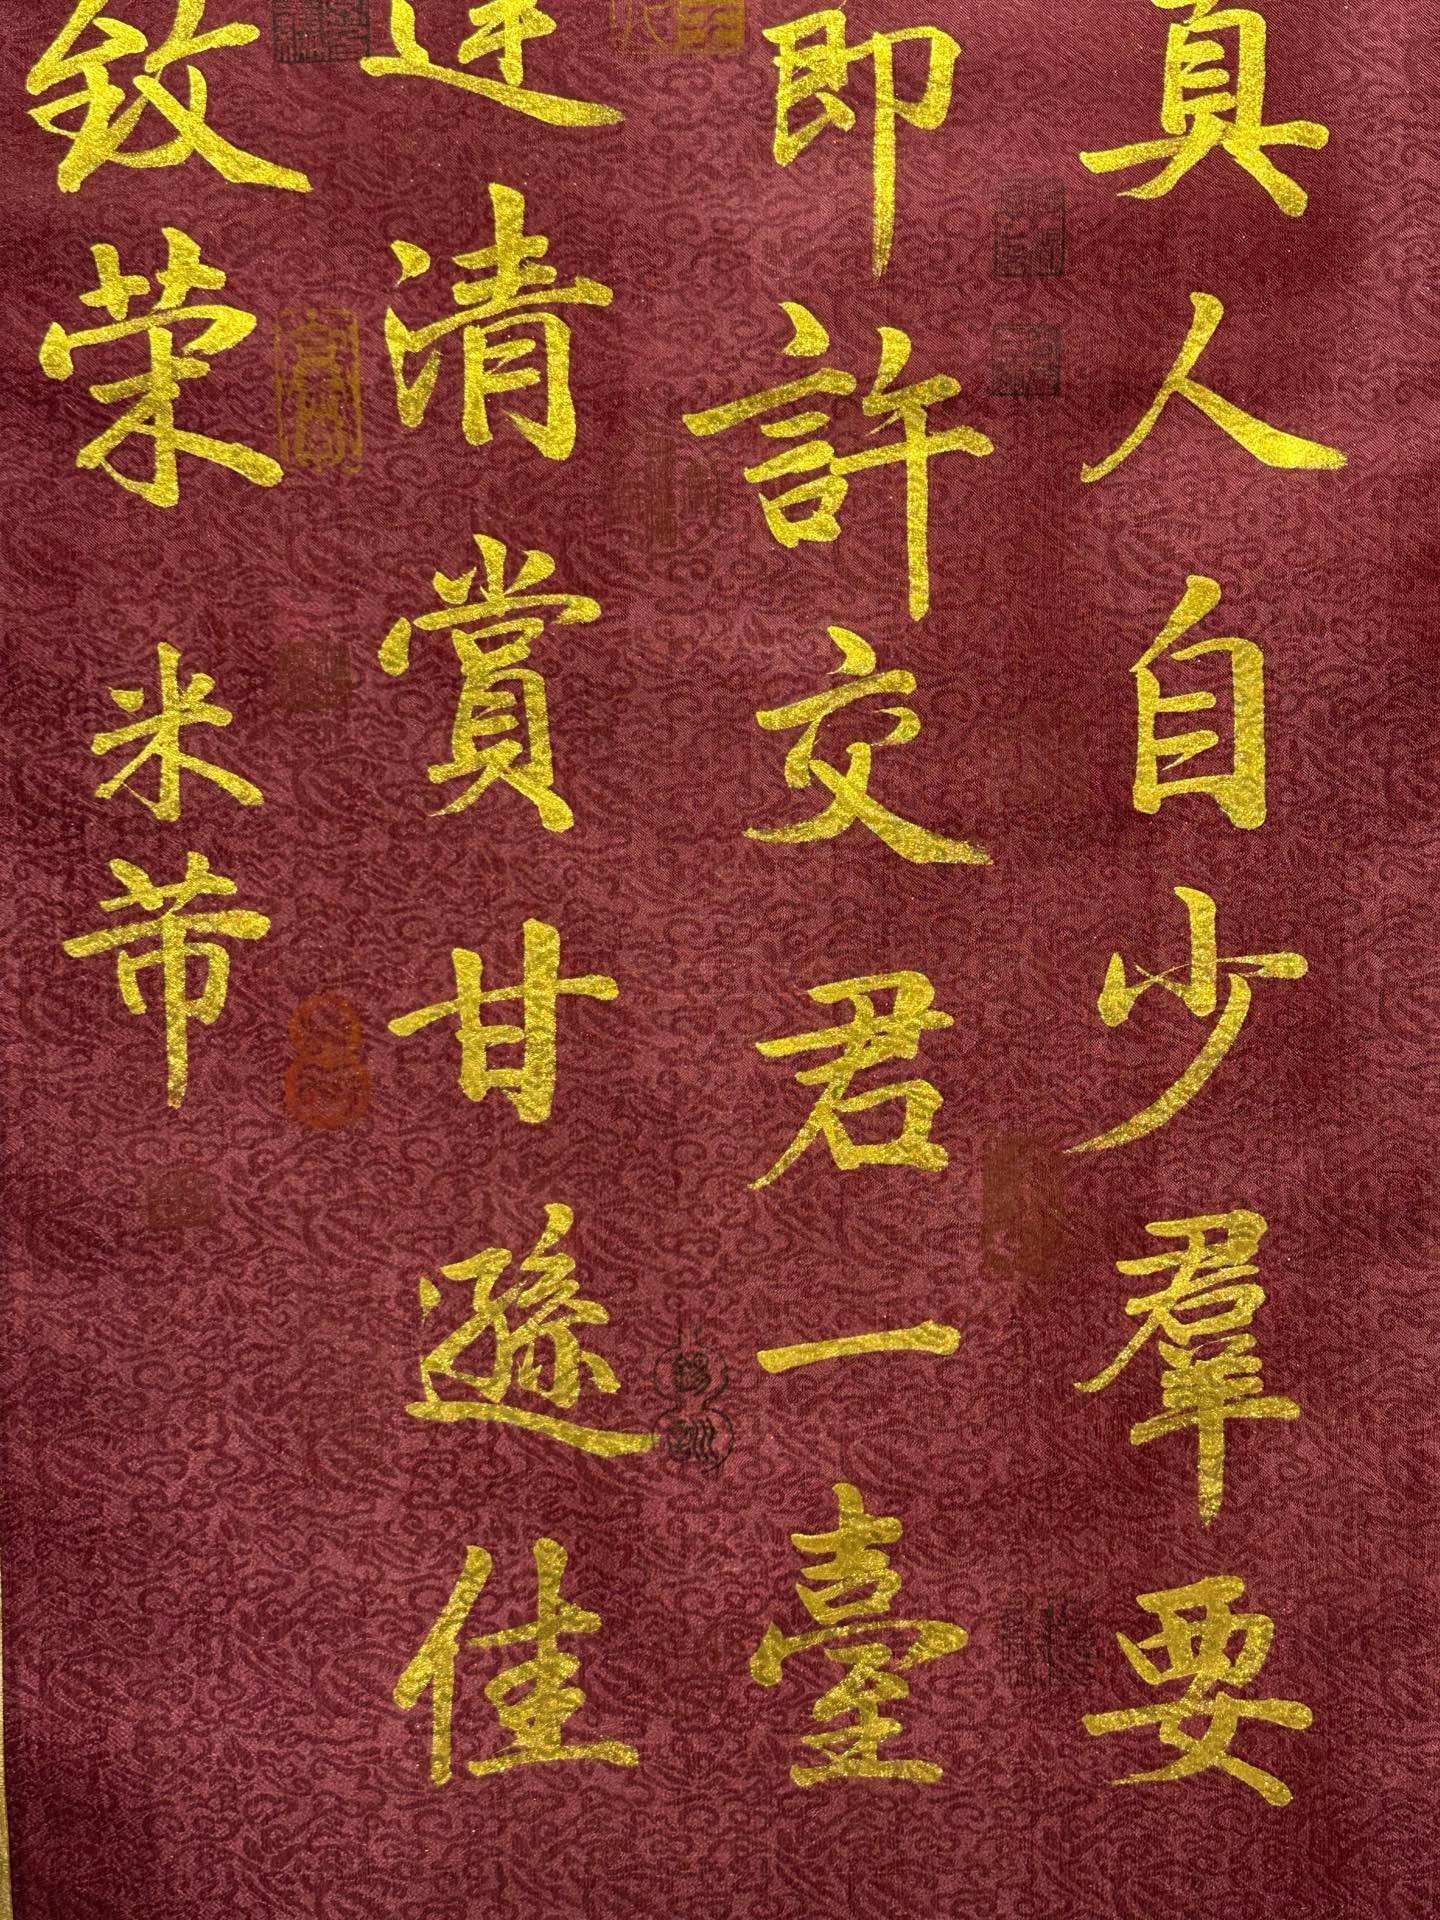 真人自少羣要
即許交君一臺
清賞甘遜佳
致荣 米芾